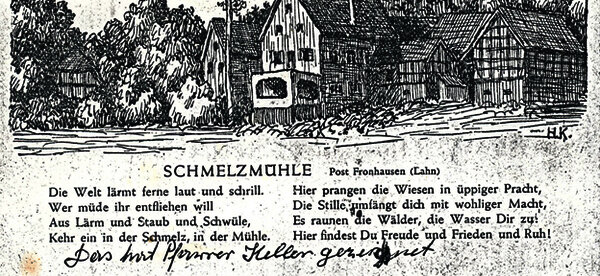 H.K.
SCHMELZMÜHLE Post Fronhausen (Lahn)
Die Welt lärmt ferne laut und schrill.
Wer müde ihr entfliehen will
Aus Lärm und Staub und Schwüle,
Kehr ein in der Schmelz, in der Mühle.
Hier prangen die Wiesen in üppiger Pracht,
Die Stille umfängt dich mit wohliger Macht,
Es raunen die Wälder, die Wasser Dir zu!
Hier findest Du Freude und Frieden und Ruh!
Das hat Pfarrer Keller gezeichnet